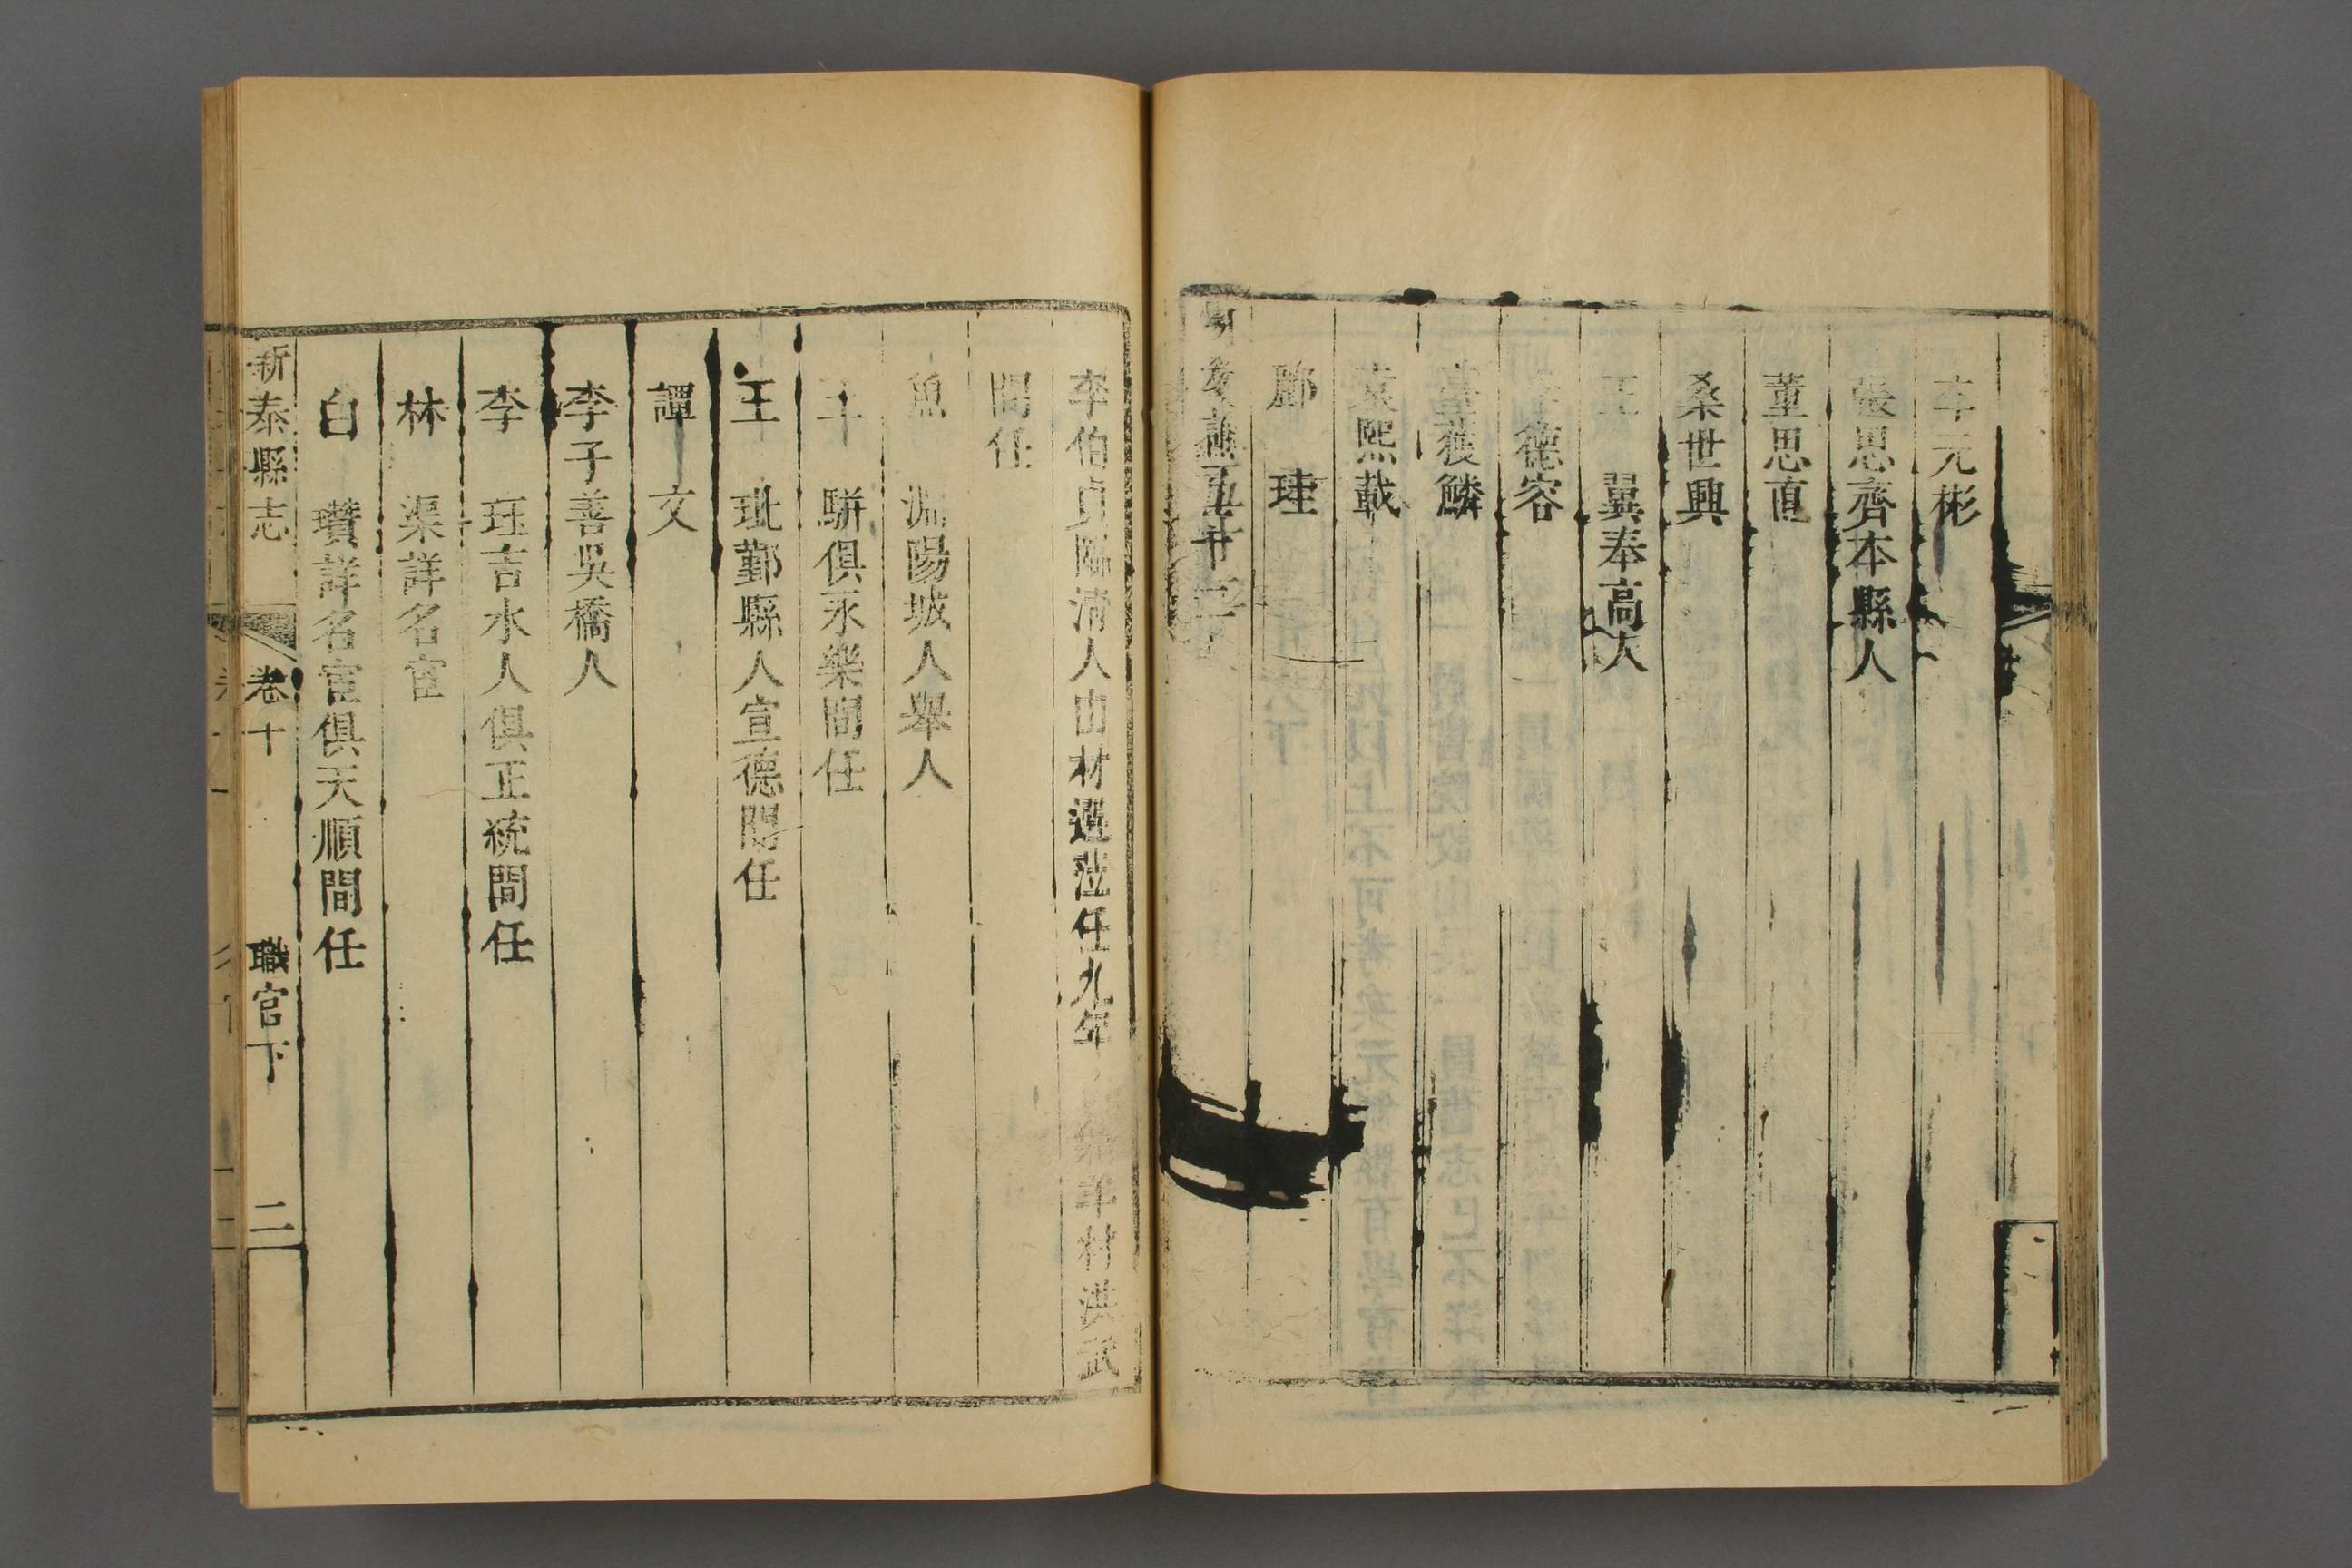 李元彬
張思齊本縣人
董思直
桑世興
王　翼奉高人
德容
獲鱗
袁熙載
鄺　珪
李伯貞臨清人由材選蒞任九年　村洪武
間任
魚　淵陽城人舉人
王　駢俱永樂間任
王　玭鄞縣人宣德間任
譚　文
李子善吳橋人
李　珏吉水人俱正統間任
林　渠詳名宦
白　瓚詳名宦俱天順間任
新泰縣志　卷十　職官下　二